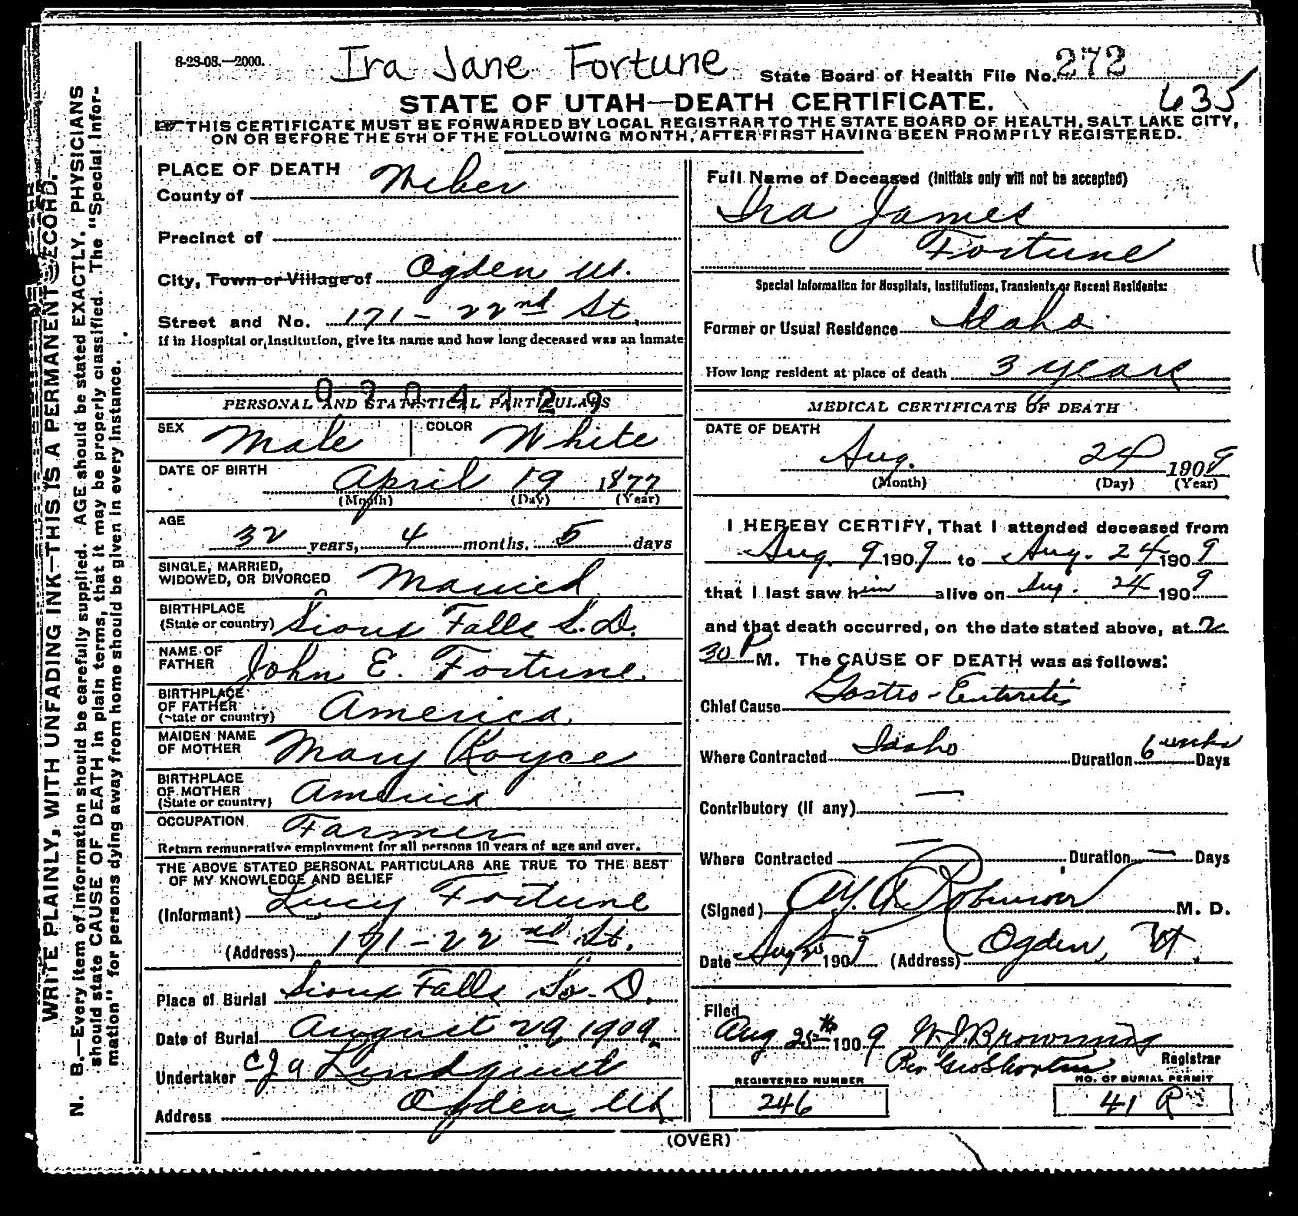 8-23-08.—2000.
Ira Jane Fortune
State Board of Health File No. 272
635
STATE OF UTAH—DEATH CERTIFICATE.
THIS CERTIFICATE MUST BE FORWARDED BY LOCAL REGISTRAR TO THE STATE BOARD OF HEALTH, SALT LAKE CITY,
ON OR BEFORE THE 5TH OF THE FOLLOWING MONTH, AFTER FIRST HAVING BEEN PROMPTLY REGISTERED.
WRITE PLAINLY, WITH UNFADING INK—THIS IS A PERMANENT RECORD.
N. B.—Every item of information should be carefully supplied. AGE should be stated EXACTLY. PHYSICIANS
should state CAUSE OF DEATH in plain terms, that it may be properly classified. The "Special Infor-
mation" for persons dying away from home should be given in every instance.
PLACE OF DEATH
County of Weber
Precinct of
City, Town or Village of Ogden Ut.
Street and No. 171 - 22nd St.
If in Hospital or Institution, give its name and how long deceased was an inmate
0904429
PERSONAL AND STATISTICAL PARTICULARS
SEX Male COLOR White
DATE OF BIRTH
April 19 1877
(Month) (Day) (Year)
AGE
32 years, 4 months. 5 days
SINGLE, MARRIED,
WIDOWED, OR DIVORCED Married
BIRTHPLACE
(State or country) Sioux Falls S.D.
NAME OF
FATHER John E. Fortune.
BIRTHPLACE
OF FATHER
(State or country) America.
MAIDEN NAME
OF MOTHER Mary Royce
BIRTHPLACE
OF MOTHER
(State or country) America
OCCUPATION Farmer
Return remunerative employment for all persons 10 years of age and over.
THE ABOVE STATED PERSONAL PARTICULARS ARE TRUE TO THE BEST
OF MY KNOWLEDGE AND BELIEF
(Informant) Lucy Fortune
(Address) 171 - 22nd St.
Place of Burial Sioux Falls So. D.
Date of Burial August 29 1909.
Undertaker C J A Lindquist
Address Ogden Ut
Full Name of Deceased (Initials only will not be accepted)
Ira James
Fortune
Special Information for Hospitals, Institutions, Transients or Recent Residents:
Former or Usual Residence Idaho
How long resident at place of death 3 years
MEDICAL CERTIFICATE OF DEATH
DATE OF DEATH
Aug. 24 1909
(Month) (Day) (Year)
I HEREBY CERTIFY, That I attended deceased from
Aug. 9 1909 to Aug. 24 1909
that I last saw him alive on Aug. 24 1909
and that death occurred, on the date stated above, at 2
30 P M. The CAUSE OF DEATH was as follows:
Chief Cause Gastro-Enteritis
Where Contracted Idaho Duration 6 weeks Days
Contributory (if any) —
Where Contracted — Duration — Days
(Signed) Robinson M. D.
Date Aug 25 1909 (Address) Ogden, Ut.
Filed
Aug 25th 1909 W J Browning
Registrar
REGISTERED NUMBER
246
NO. OF BURIAL PERMIT
41 R
(OVER)